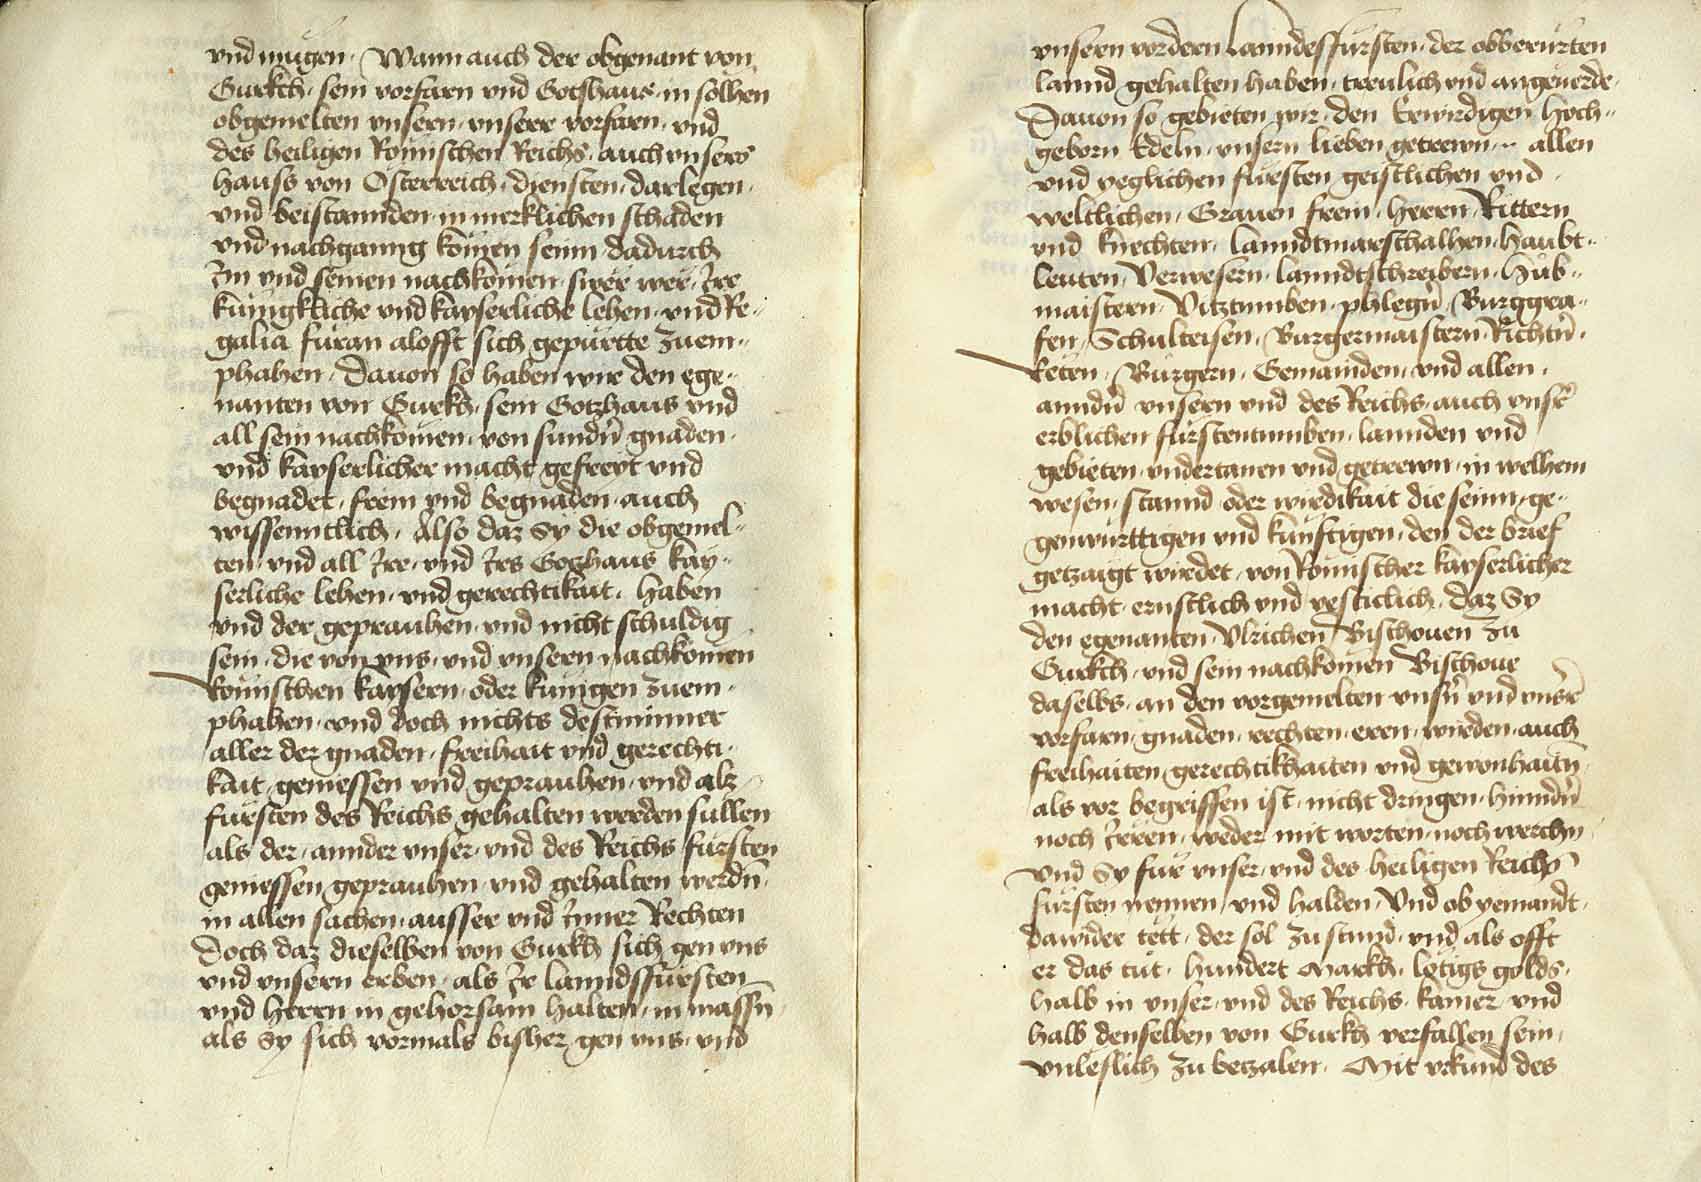 vnd mugen · Wann auch der obgenant von
Gurkch · sein vorfarn vnd Gotshaus · in solhen
obgemelten vnsern · vnserr vorfarn · vnd
des heiligen Römischen Reichs · auch vnsers
hauss von Österreich · diensten · darlegen ·
vnd beistannden · in merklichen schaden
vnd nachganng komen seinn dadurch
Im vnd seinen nachkomen · swër wer · Ire
kunigkliche vnd kayserliche lehen · vnd Re-
galia füran alofft sich gepurtte zuem-
phahen · Dauon so haben wir den ege-
nanten von Gurkh · sein Gotzhaus vnd
all sein nachkomen · von sundern̄ gnaden ·
vnd kayserlicher macht gefreyt vnd
begnadet · frein vnd begnaden · auch
wissenntlich · Also daz Sy die obgemel-
ten · vnd all Ire · vnd Irs Gozhaus kay-
serliche lehen · vnd gerechtikait · haben
vnd der geprauhen · vnd nicht schuldig
sein · die von vns · vnd vnsern nachkomen
Römischen kaysern · oder kunigen zuem-
phahen · vnd doch nichts destminner
aller der gnaden · freihait vnd gerechti-
kait · geniessen vnd geprauhen · vnd alz
fürsten des Reichs gehalten werden sullen
als der · annder vnser · vnd des Reichs fürsten
geniessen geprauhen · vnd gehalten werdn̄ ·
in allen sachen · ausser vnd Inner Rechten
Doch daz dieselben von Gurkh sich gen vns
vnd vnsern erben · als Ir lanndsfürsten
vnd herrn in gehorsam halten · in massn̄ ·
als Sy sich vormals bisher gen vns · vnd
vnsern vordern lanndesfürsten · der obberürten
lannd gehalten haben · treulich vnd angeuerde ·
Dauon so gebieten wir · den Erwirdigen hoch-
geborn Edeln · vnsern lieben getrewn · allen
vnd yeglichen fürsten geistlichen vnd ·
weltlichen · Grauen frein · herrn · Rittern
vnd knechten · lanndtmarschalhen · haubt-
leuten · Verwesern · lanndtschreibern · hüb-
maistern · Vitztumben · phlegn̄ · Burggra-
fen · Schulteisen · Burgermaistern Richtn̄ ·
Rëten · Burgern · Gemainden · vnd allen ·
anndn̄ vnsern vnd des Reichs · auch vnsr̄
erblichen fürstentumben · lannden vnd
gebieten · vndertanen vnd getrewn · in welhem
wesen · stannd oder wirdikait die seinn · ge-
genwürttigen vnd künftigen · den der brief
getzaigt wirdet · von Römischer kayserlicher
macht · ernstlich vnd vesticlich · daz Sy
den egenanten · Vlrichen Bischouen zu
Gurkch · vnd sein nachkomen Bischoue
daselbs · an den vorgemelten vnsn̄ vnd vnsr̄
vorfarn · gnaden · rechten · eren · wirden · auch
freihaiten gerechtikhaiten vnd gewonhaitn̄
als vor begriffen ist · nicht dringen · hinndn̄
noch Irren · weder mit worten · noch werchn ·
vnd Sy für vnser · vnd des heiligen Reichs
fürsten nennen · vnd halden · Vnd ob yemandt ·
dawider tëtt · der sol zu stund · vnd als offt
er das tut · hundert Markh · lötigs golds ·
halb in vnser · vnd des Reichs · kamer · vnd
halb denselben von Gurkh verfallen sein ·
vnleslich zu betzalen · Mit vrkund des